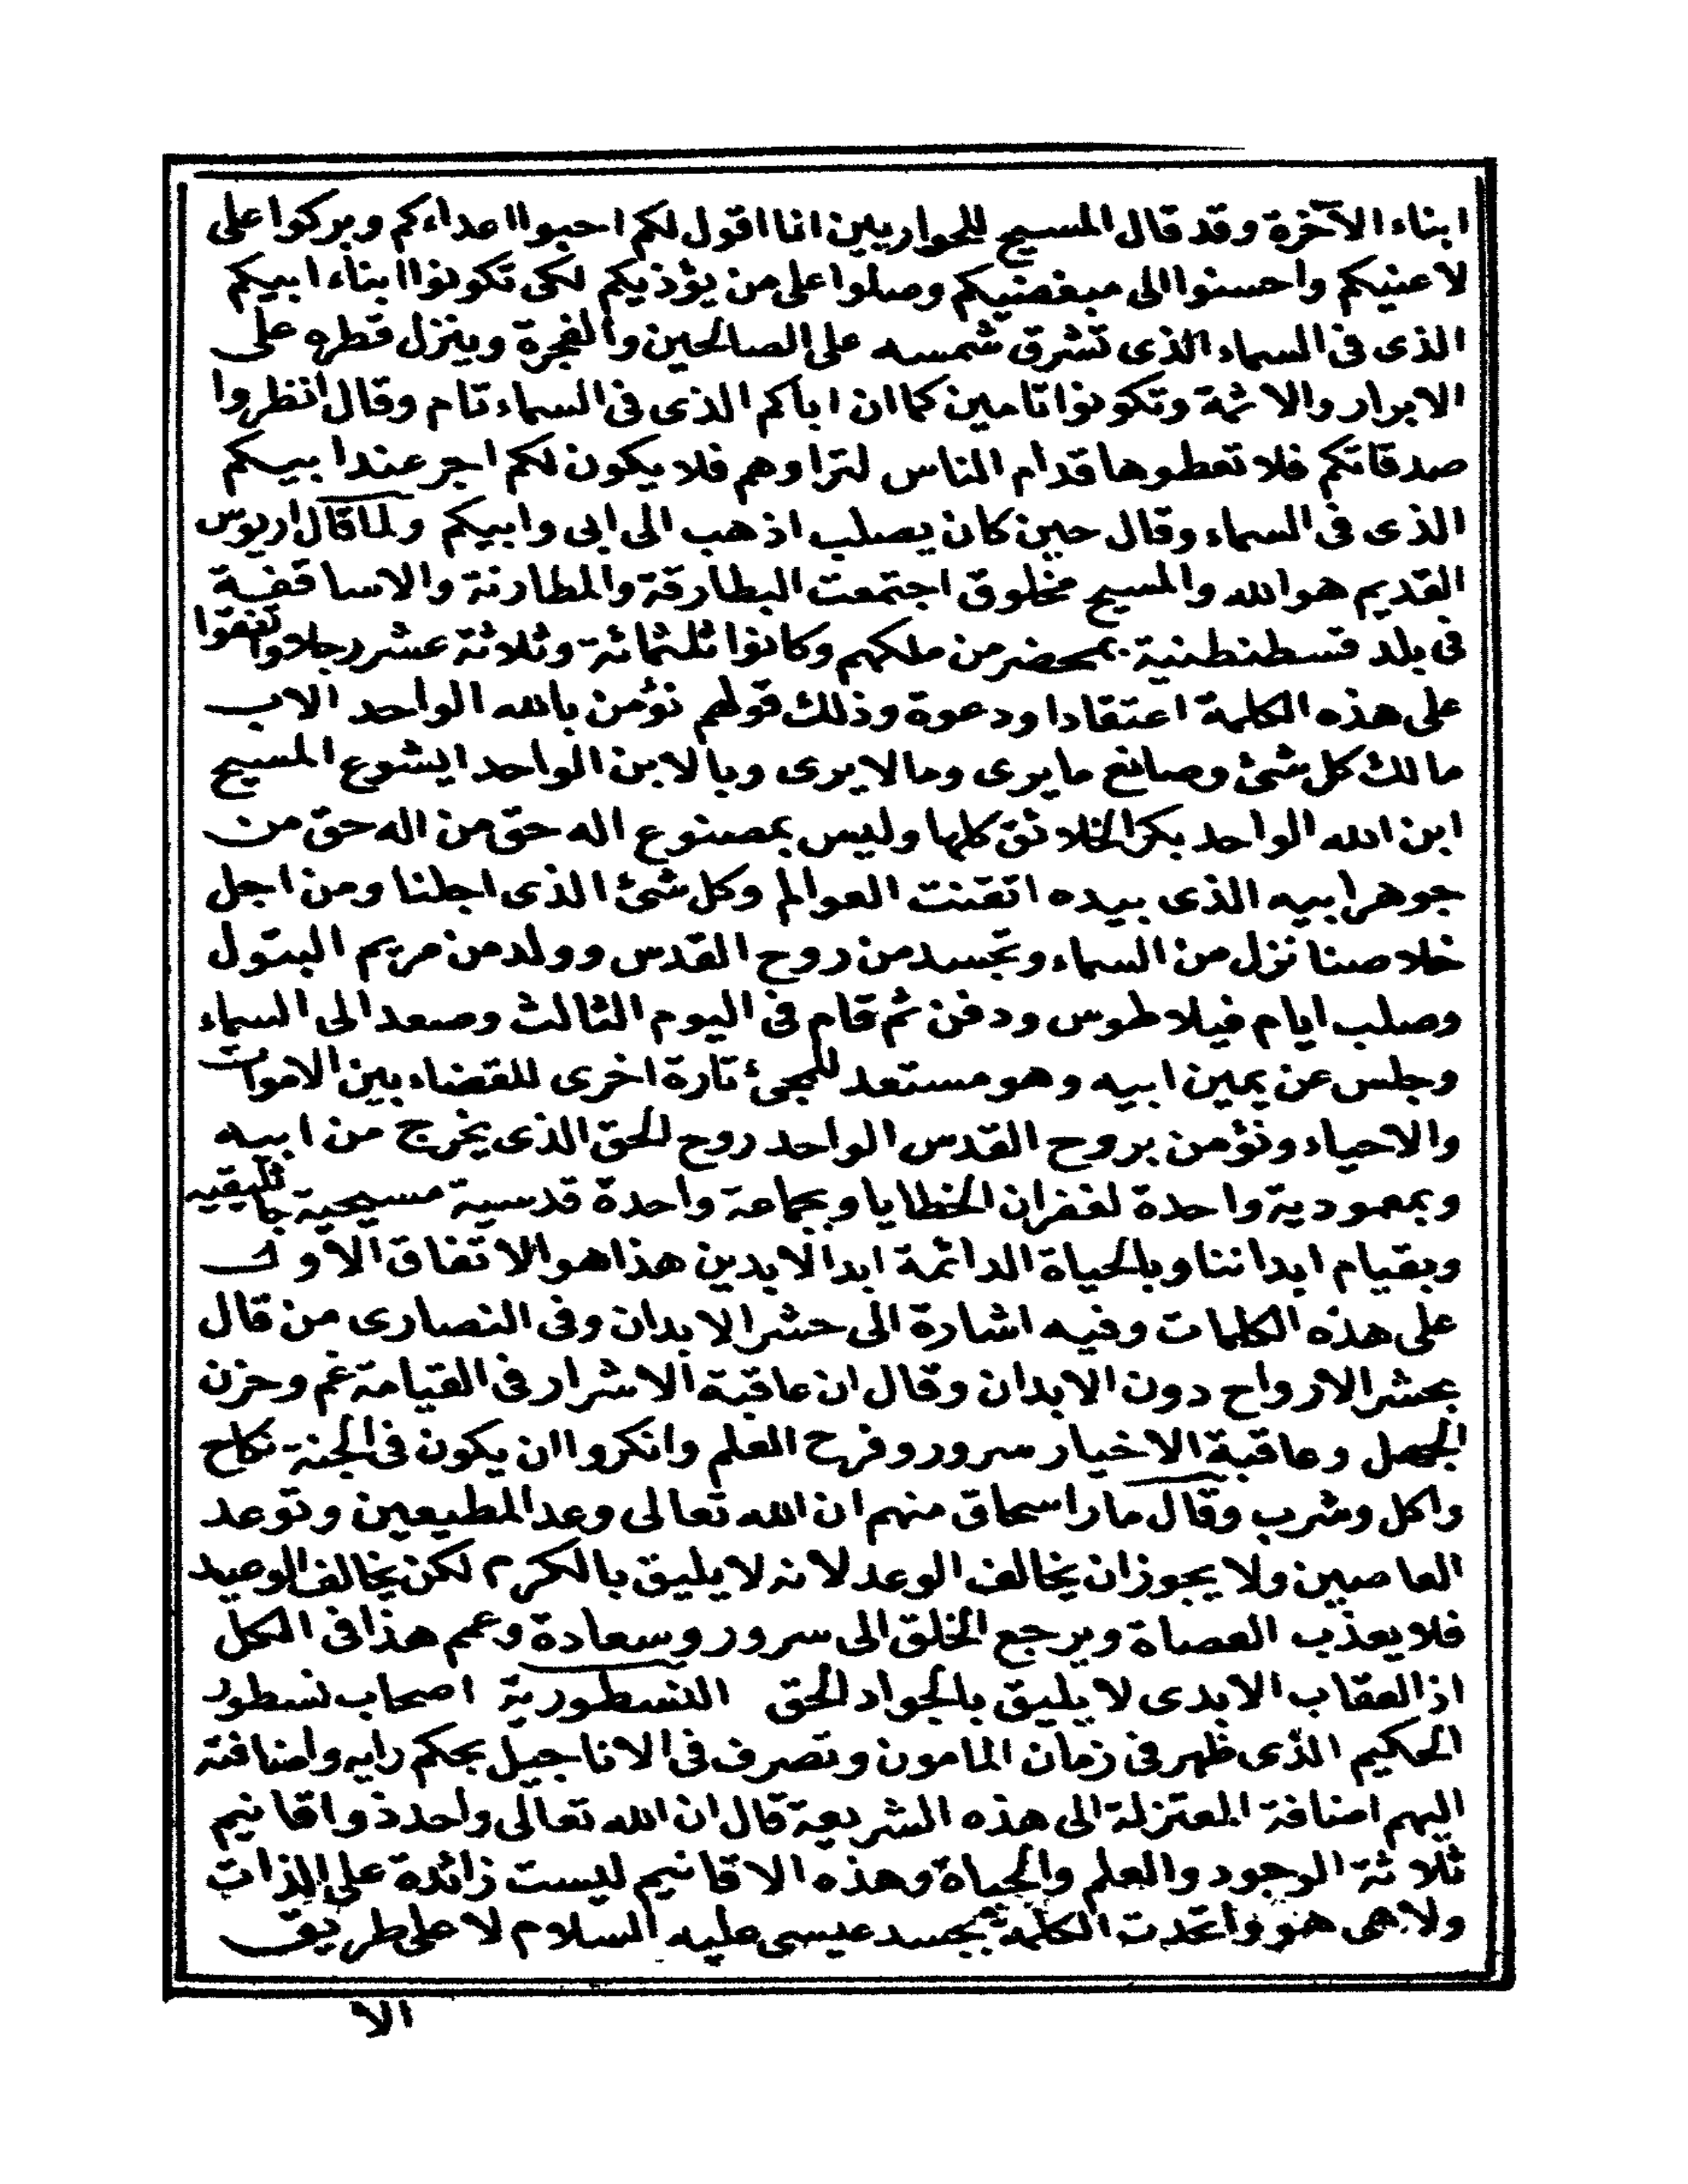 ابناء الآخرة وقد قال المسيح للحواريين انا اقول لكم احبوا اعداءكم وبركوا على
لاعنيكم واحسنوا الى مبغضيكم وصلوا على من يؤذيكم لكى تكونوا ابناء ابيكم
الذى فى السماء الذى تشرق شمسه على الصالحين والفجرة وينزل قطره على
الابرار والاثمة وتكونوا تامين كما ان اباكم الذى فى السماء تام وقال انظروا
صدقاتكم فلا تعطوها قدام الناس لتراوهم فلا يكون لكم اجر عند ابيكم
الذى فى السماء وقال حين كان يصلب اذهب الى ابى وابيكم ولما قال اريوس
القديم هو الله والمسيح مخلوق اجتمعت البطارقة والمطارنة والاساقفة
فى بلد قسطنطنية بمحضر من ملكهم وكانوا ثلثمائة وثلاثة عشر رجلا واتفقوا
على هذه الكلمة اعتقادا ودعوة وذلك قولهم نؤمن بالله الواحد الاب
مالك كل شئ وصانع ما يرى وما لا يرى وبالابن الواحد ايشوع المسيح
ابن الله الواحد بكر الخلائق كلها وليس بمصنوع اله حق من اله حق من
جوهر ابيه الذى بيده اتقنت العوالم وكل شئ الذى اجلنا ومن اجل
خلاصنا نزل من السماء وتجسد من روح القدس وولد من مريم البتول
وصلب ايام فيلاطوس ودفن ثم قام فى اليوم الثالث وصعد الى السماء
وجلس عن يمين ابيه وهو مستعد للمجئ تارة اخرى للقضاء بين الاموات
والاحياء ونؤمن بروح القدس الواحد روح الحق الذى يخرج من ابيه
وبمعمودية واحدة لغفران الخطايا وبجماعة واحدة قدسية مسيحية جاثليقيه
وبقيام ابداننا وبالحياة الدائمة ابد الابدين هذا هو الاتفاق الاول
على هذه الكلمات وفيه اشارة الى حشر الابدان وفى النصارى من قال
بحشر الارواح دون الابدان وقال ان عاقبة الاشرار فى القيامة غم وحزن
الجهل وعاقبة الاخيار سرور وفرح العلم وانكروا ان يكون فى الجنة نكاح
واكل وشرب وقال مار اسحاق منهم ان الله تعالى وعد المطيعين وتوعد
العاصين ولا يجوز ان يخالف الوعد لانه لا يليق بالكرم لكن يخالف الوعيد
فلا يعذب العصاة ويرجع الخلق الى سرور وسعادة وعمم هذا فى الكل
اذ العقاب الابدى لا يليق بالجواد الحق النسطورية اصحاب نسطور
الحكيم الذى ظهر فى زمان المامون وتصرف فى الاناجيل بحكم رايه واضافته
اليهم اضافة المعتزلة الى هذه الشريعة قال ان الله تعالى واحد ذو اقانيم
ثلاثة الوجود والعلم والحياة وهذه الاقانيم ليست زائدة على الذات
ولا هى هو واتحدت الكلمة بجسد عيسى عليه السلام لا على طريق
الا